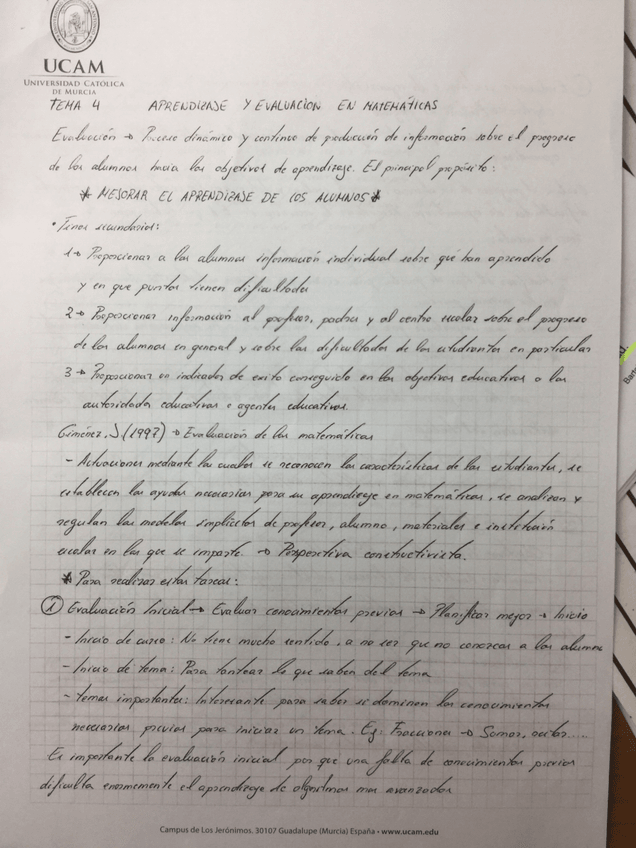 UCAM
UNIVERSIDAD CATÓLICA
DE MURCIA
TEMA 4 APRENDIZAJE Y EVALUACION EN MATEMÁTICAS
Evaluación → Proceso dinámico y continuo de producción de información sobre el progreso
de los alumnos hacia los objetivos de aprendizaje. El principal propósito:
* MEJORAR EL APRENDIZAJE DE LOS ALUMNOS *
• Fines secundarios:
1→ Proporcionar a los alumnos información individual sobre qué han aprendido
y en que puntos tienen dificultades
2→ Proporcionar información al profesor, padres y al centro escolar sobre el progreso
de los alumnos en general y sobre las dificultades de los estudiantes en particular
3→ Proporcionar un indicador de exito conseguido en los objetivos educativos a las
autoridades educativas e agentes educativos.
Giménez, J (1997) → Evaluación de las matemáticas
- Actuaciones mediante las cuales se reconocen las características de los estudiantes, se
establecen las ayudas necesarias para su aprendizaje en matemáticas, se analizan y
regulan los modelos implícitos de profesor, alumno, materiales e institución
escolar en las que se imparte. → Perspectiva constructivista.
* Para realizar estas tareas:
① Evaluación Inicial → Evaluar conocimientos previos → Planificar mejor → Inicio
- Inicio de curso: No tiene mucho sentido, a no ser que no conozcas a los alumnos
- Inicio de tema: Para tantear lo que saben del tema
- temas importantes: Interesante para saber si dominan los conocimientos
necesarios previos para iniciar un tema. Ej: Fracciones → Sumar, quitar.....
Es importante la evaluación inicial por que una falta de conocimientos previos
dificulta enormemente el aprendizaje de algoritmos mas avanzados
Campus de Los Jerónimos. 30107 Guadalupe (Murcia) España • www.ucam.edu